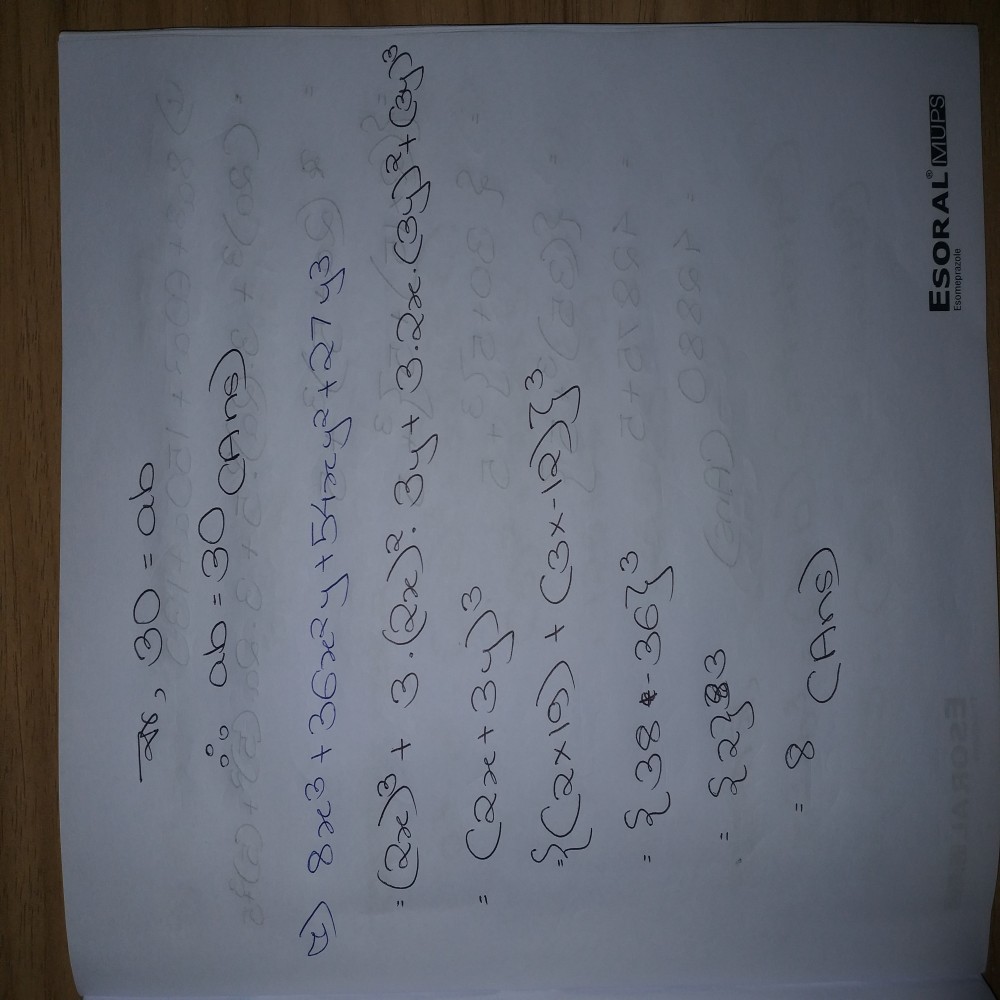 বা, 30 = ab
∴ ab = 30 (Ans)
8x³ + 36x²y + 54xy² + 27y³
= (2x)³ + 3.(2x)².3y + 3.2x.(3y)² + (3y)³
= (2x + 3y)³
= {(2×19) + (3×-12)}³
= {38 - 36}³
= {2}³
= 8 (Ans)
ESORAL® MUPS
Esomeprazole